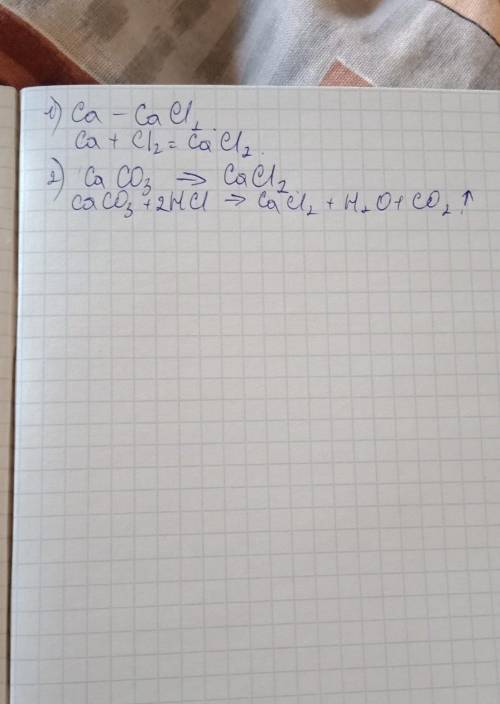 1) Ca – CaCl₂
Ca + Cl₂ = CaCl₂.
2) CaCO₃ ⇒ CaCl₂
CaCO₃ + 2HCl → CaCl₂ + H₂O + CO₂↑